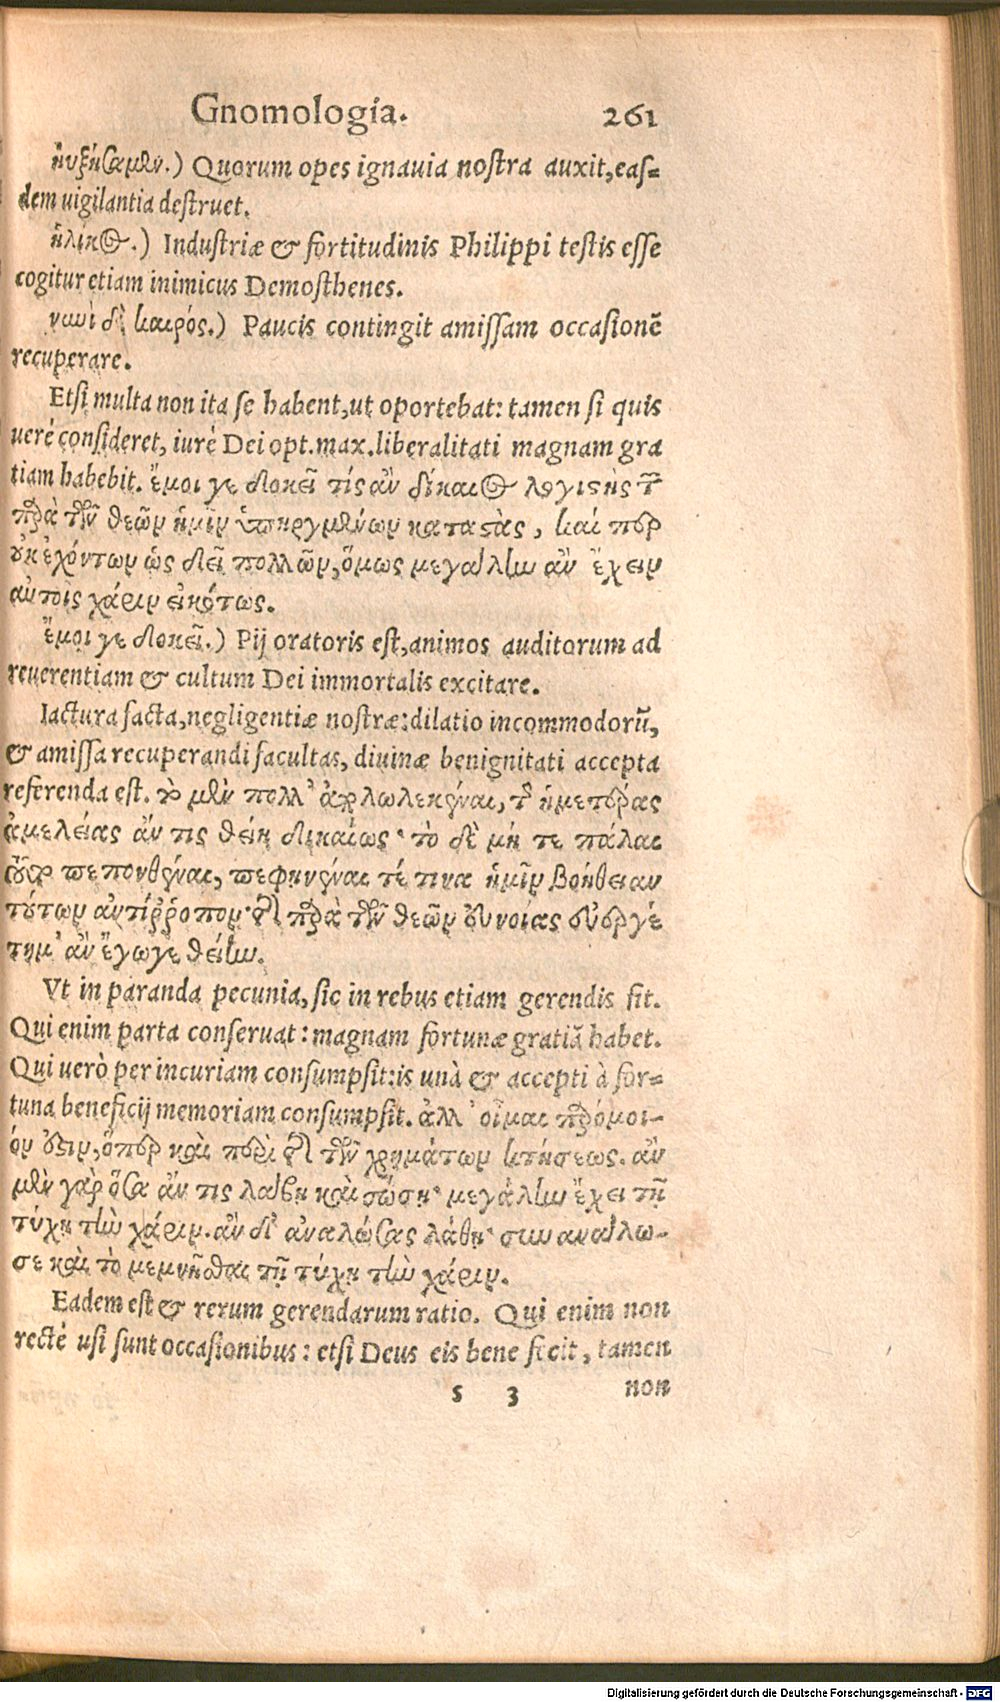 Gnomologia. 261
ηὐξήσαμεν.) Quorum opes ignauia nostra auxit, eas=
dem uigilantia destruet.
ἡλίκος.) Industriæ & fortitudinis Philippi testis esse
cogitur etiam inimicus Demosthenes.
νυνὶ δὴ καιρός.) Paucis contingit amissam occasionē
recuperare.
Etsi multa non ita se habent, ut oportebat: tamen si quis
uerè consideret, iurè Dei opt. max. liberalitati magnam gra
tiam habebit. ἔμοι γε δοκεῖ τίς ἂν δίκαιος λογιστὴς τῶν
παρὰ τῶν θεῶν ἡμῖν ὑπηργμένων καταστὰς, καί περ
οὐκ ἐχόντων ὡς δεῖ πολλῶν, ὅμως μεγάλην ἂν ἔχειν
αὐτοις χάριν εἰκότως.
ἔμοι γε δοκεῖ.) Pij oratoris est, animos auditorum ad
reuerentiam & cultum Dei immortalis excitare.
Iactura facta, negligentiæ nostræ: dilatio incommodorū,
& amissa recuperandi facultas, diuinæ benignitati accepta
referenda est. τὸ μὲν πολλ' ἀπολωλεκέναι, τῆς ἡμετέρας
ἀμελείας ἄν τις θείη δικαίως· τὸ δὲ μή τε πάλαι
τοῦτο πεπονθέναι, πεφηνέναι τέ τινα ἡμῖν βοήθειαν
τούτων ἀντίῤῥοπον· τῆς παρὰ τῶν θεῶν εὐνοίας εὐεργέ
τημ' ἂν ἔγωγε θείην.
Vt in paranda pecunia, sic in rebus etiam gerendis fit.
Qui enim parta conseruat: magnam fortunæ gratiā habet.
Qui uerò per incuriam consumpsit: is unà & accepti à for=
tuna beneficij memoriam consumpsit. ἀλλ' οἶμαι παρόμοι-
όν ἐστιν, ὅπερ καὶ περὶ τῆς τῶν χρημάτων κτήσεως. ἂν
μὲν γὰρ ὅσα ἄν τις λάβῃ καὶ σώσῃ· μεγάλην ἔχει τῇ
τύχῃ τὴν χάριν. ἂν δ' ἀναλώσας λάθῃ· συνανάλω-
σε καὶ τὸ μεμνῆσθαι τῇ τύχῃ τὴν χάριν.
Eadem est & rerum gerendarum ratio. Qui enim non
rectè usi sunt occasionibus: etsi Deus eis bene fecit, tamen
s 3 non
Digitalisierung gefördert durch die Deutsche Forschungsgemeinschaft - DFG